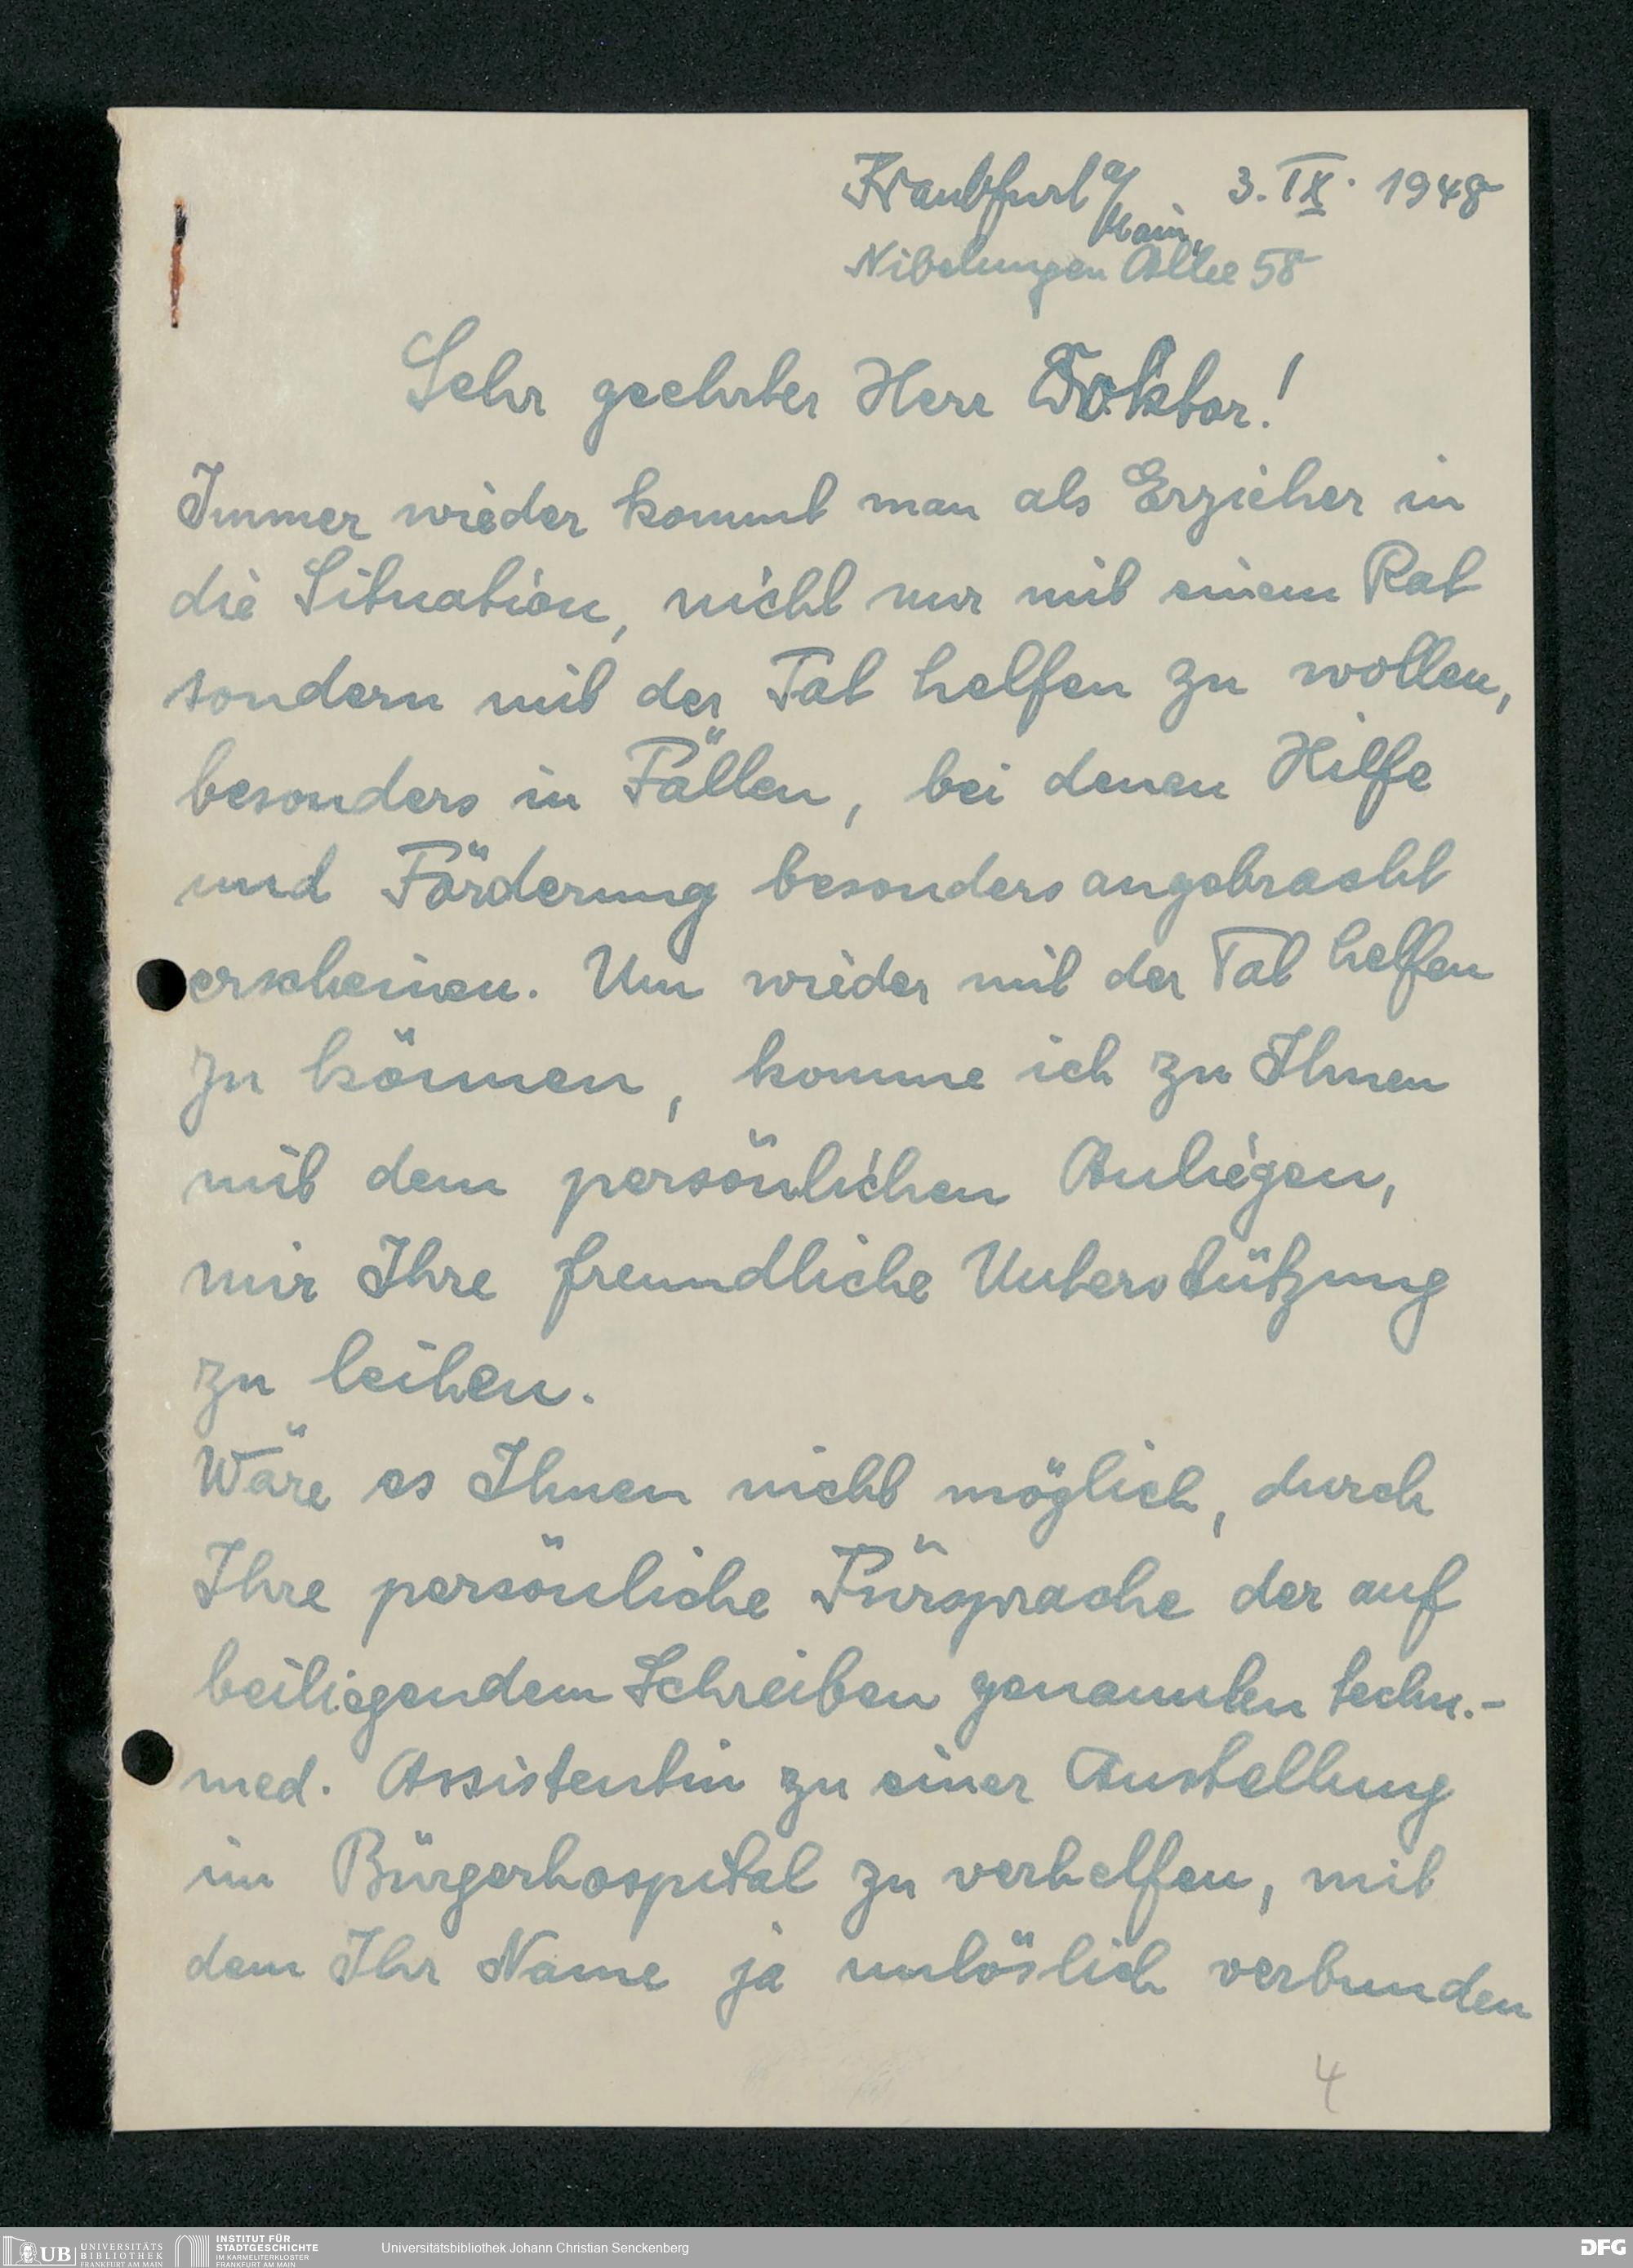 Frankfurt a/Main, 3. IX. 1948
Nibelungen Allee 58
Sehr geehrter Herr Doktor!
Immer wieder kommt man als Erzieher in
die Situation, nicht nur mit einem Rat
sondern mit der Tat helfen zu wollen,
besonders in Fällen, bei denen Hilfe
und Förderung besonders angebracht
erscheinen. Um wieder mit der Tat helfen
zu können, komme ich zu Ihnen
mit dem persönlichen Anliegen,
mir Ihre freundliche Unterstützung
zu leihen.
Wäre es Ihnen nicht möglich, durch
Ihre persönliche Fürsprache der auf
beiliegendem Schreiben genannten techn.-
med. Assistentin zu einer Anstellung
im Bürgerhospital zu verhelfen, mit
dem Ihr Name ja unlöslich verbunden
4
UB UNIVERSITÄTS
BIBLIOTHEK
FRANKFURT AM MAIN
INSTITUT FÜR
STADTGESCHICHTE
IM KARMELITERKLOSTER
FRANKFURT AM MAIN
Universitätsbibliothek Johann Christian Senckenberg
DFG